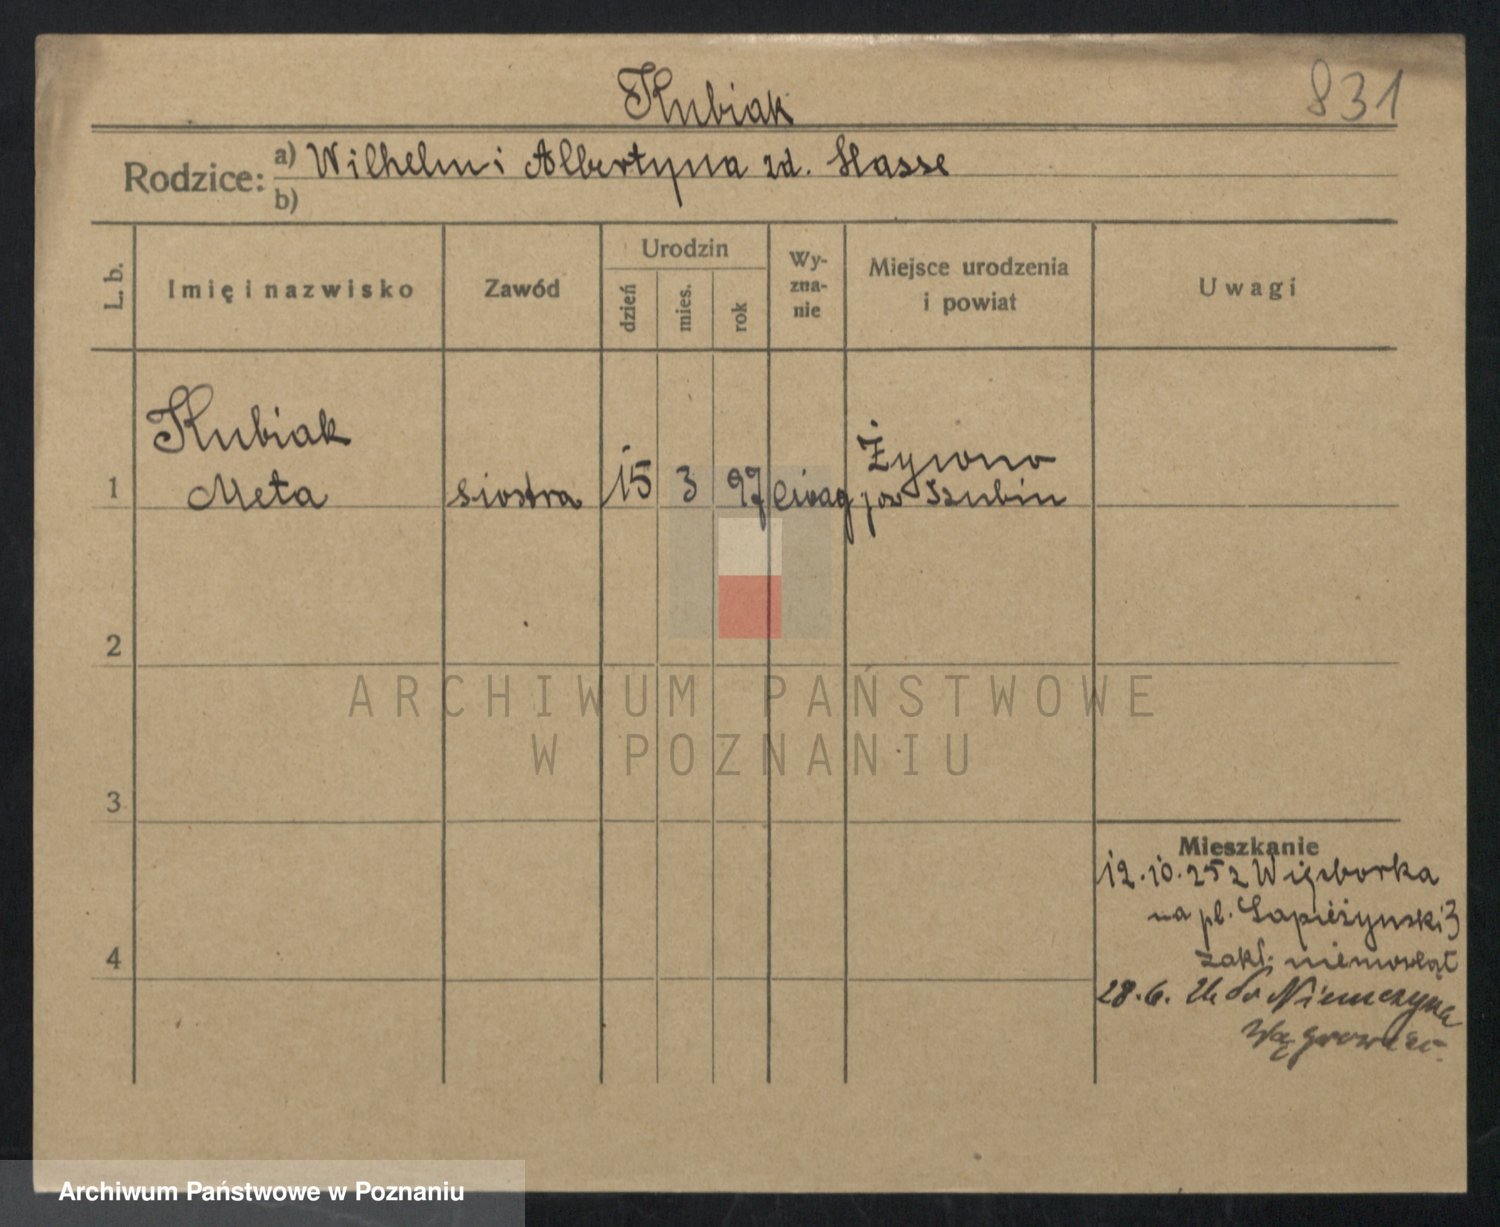 Kubiak
831
Rodzice: a) Wilhelm i Albertyna zd. Hasse
b)
L. b.
Imię i nazwisko
Zawód
Urodzin
dzień
mies.
rok
Wy-
zna-
nie
Miejsce urodzenia
i powiat
Uwagi
Kubiak
Meta
1
siostra
15
3
97
ewag
Żywno
pow Szubin
2
ARCHIWUM PAŃSTWOWE
W POZNANIU
3
Mieszkanie
12.10.25 z Więcborka
na pl. Sapieżyński 3
zakł. niemowląt
4
28.6. do Niemczyna
Wągrowiec
Archiwum Państwowe w Poznaniu